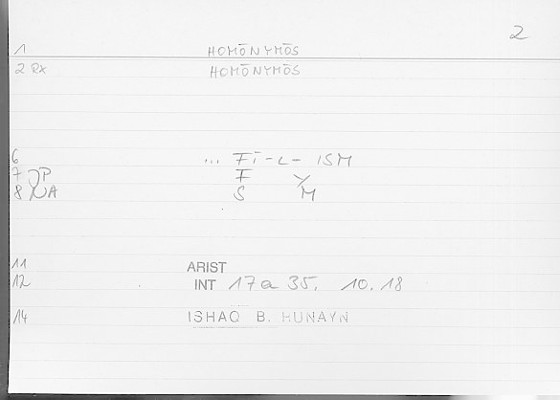 2
1 HOMŌNYMŌS
2 RX HOMŌNYMŌS
6 ... FĪ-L-ISM
7 JP F Y
8 NA S M
11 ARIST
12 INT 17a 35. 10.18
14 ISHAQ B. HUNAYN